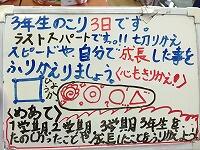 3年生のこり3日です。
ラストスパートです。!! 切りかえ
スピードや自分で成長した事を
ふりかえりましょう〈心もきりかえ!〉
〈めあて〉
1学期 2学期 3学期 3年生を
たのしかったことや成長したことをふりかえよう